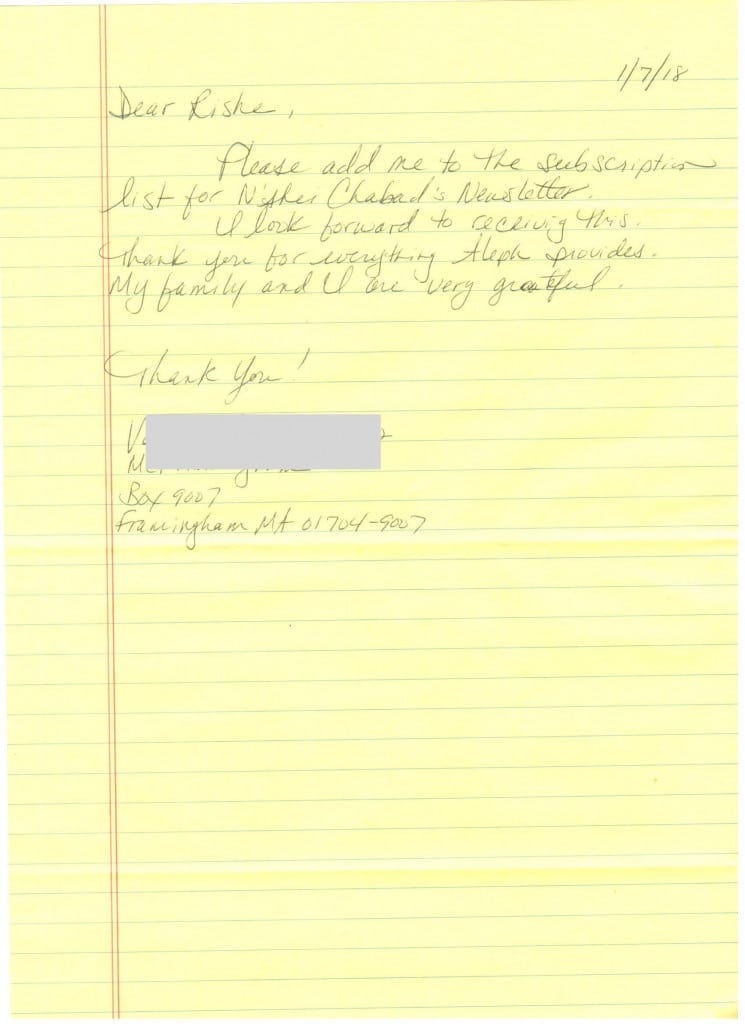 1/7/18
Dear Rishe,
Please add me to the subscription
list for N'shei Chabad's Newsletter.
I look forward to receiving this.
Thank you for everything Aleph provides.
My family and I are very grateful.
Thank You!
Box 9007
Framingham MA 01704-9007